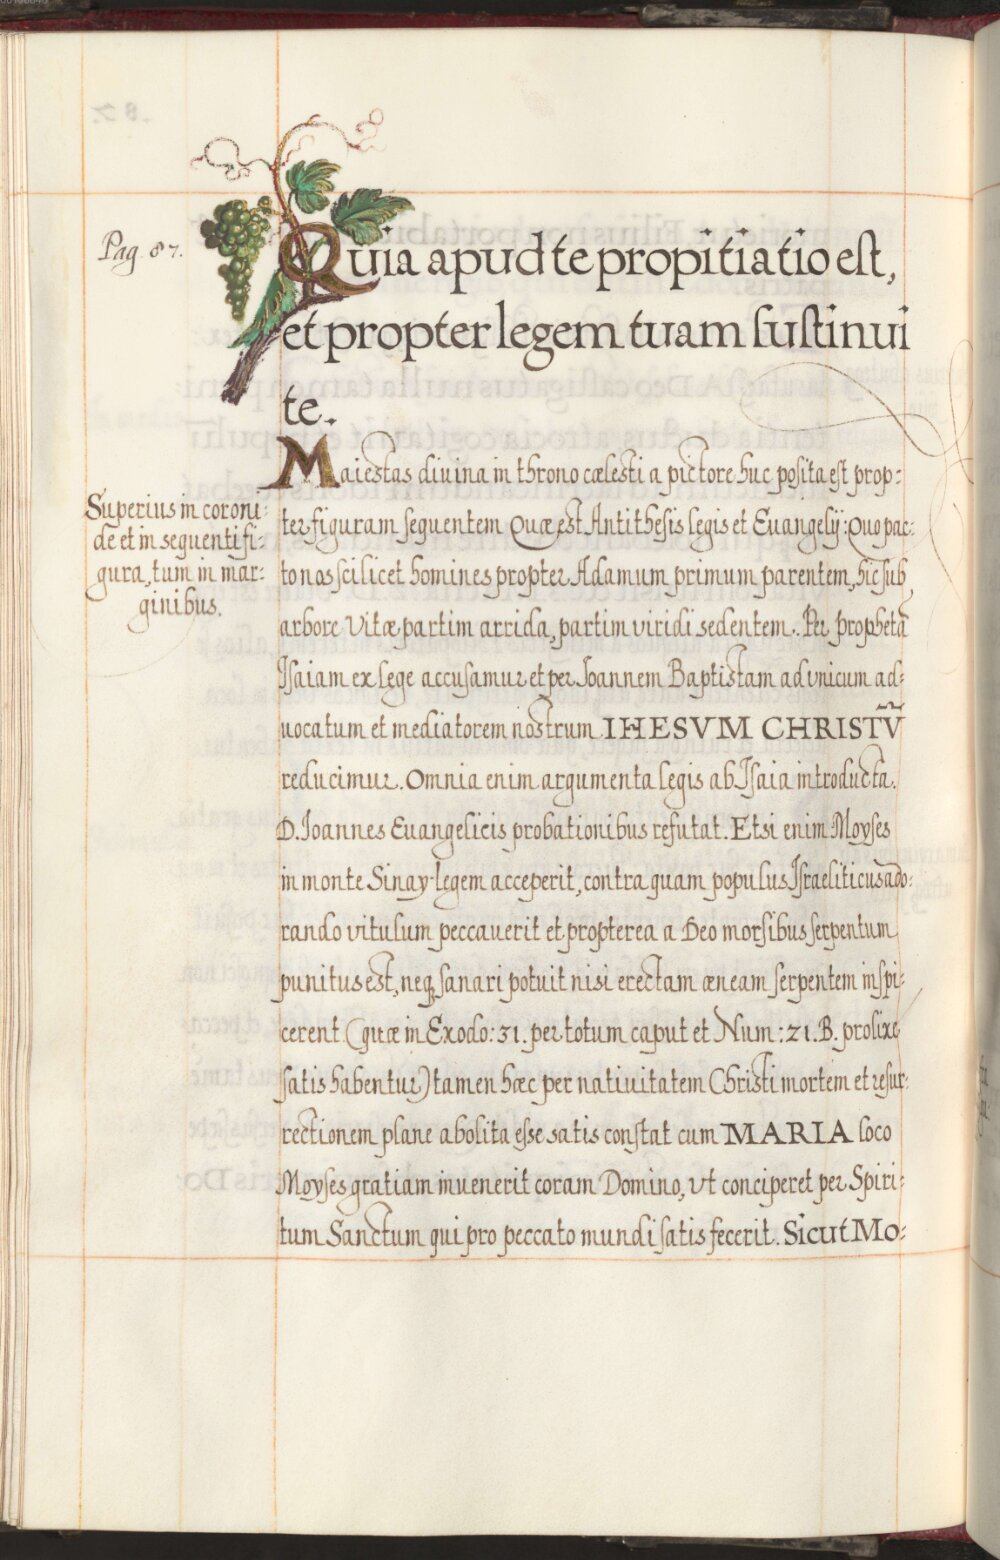 Pag. 87.
Quia apud te propitiatio est,
et propter legem tuam sustinui
te.
Superius in coroni:
de et in sequenti fi:
gura, tum in mar:
ginibus.
Maiestas divina in throno cælesti a pictore huc posita est prop:
ter figuram sequentem Quæ est Antithesis legis et Euangelij: Quo pac:
to nos scilicet homines propter Adamum primum parentem, hic sub
arbore Vitæ partim arrida, partim viridi sedentem. Per prophetā
Isaiam ex lege accusamur et per Joannem Baptistam ad vnicum ad:
uocatum et mediatorem nostrum IHESVM CHRISTŨ
reducimur. Omnia enim argumenta legis ab Isaia introducta.
D. Ioannes Euangelicis probationibus refutat. Etsi enim Moyses
in monte Sinay legem acceperit, contra quam populus Israeliticus ado:
rando vitulum peccauerit et propterea a Deo morsibus serpentum
punitus est, neq, sanari potuit nisi erectam æneam serpentem inspi:
cerent (quæ in Exodo: 31. per totum caput et Num: 21. B. prolixe
satis habentur) tamen hæc per natiuitatem Christi mortem et resur:
rectionem plane abolita esse satis constat cum MARIA loco
Moyses gratiam inuenerit coram Domino, vt conciperet per Spiri:
tum Sanctum qui pro peccato mundi satis fecerit. Sicut Mo: